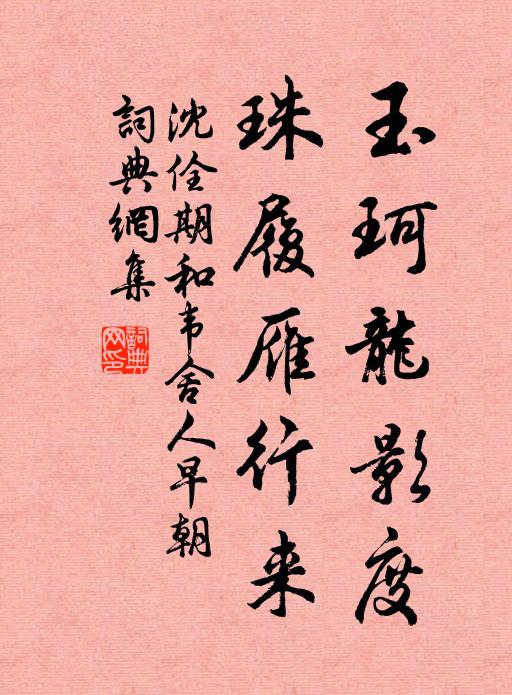 玉珂龍影度
珠履雁行来
沈佺期和韦舍人早朝
詞典網集
詞典网印